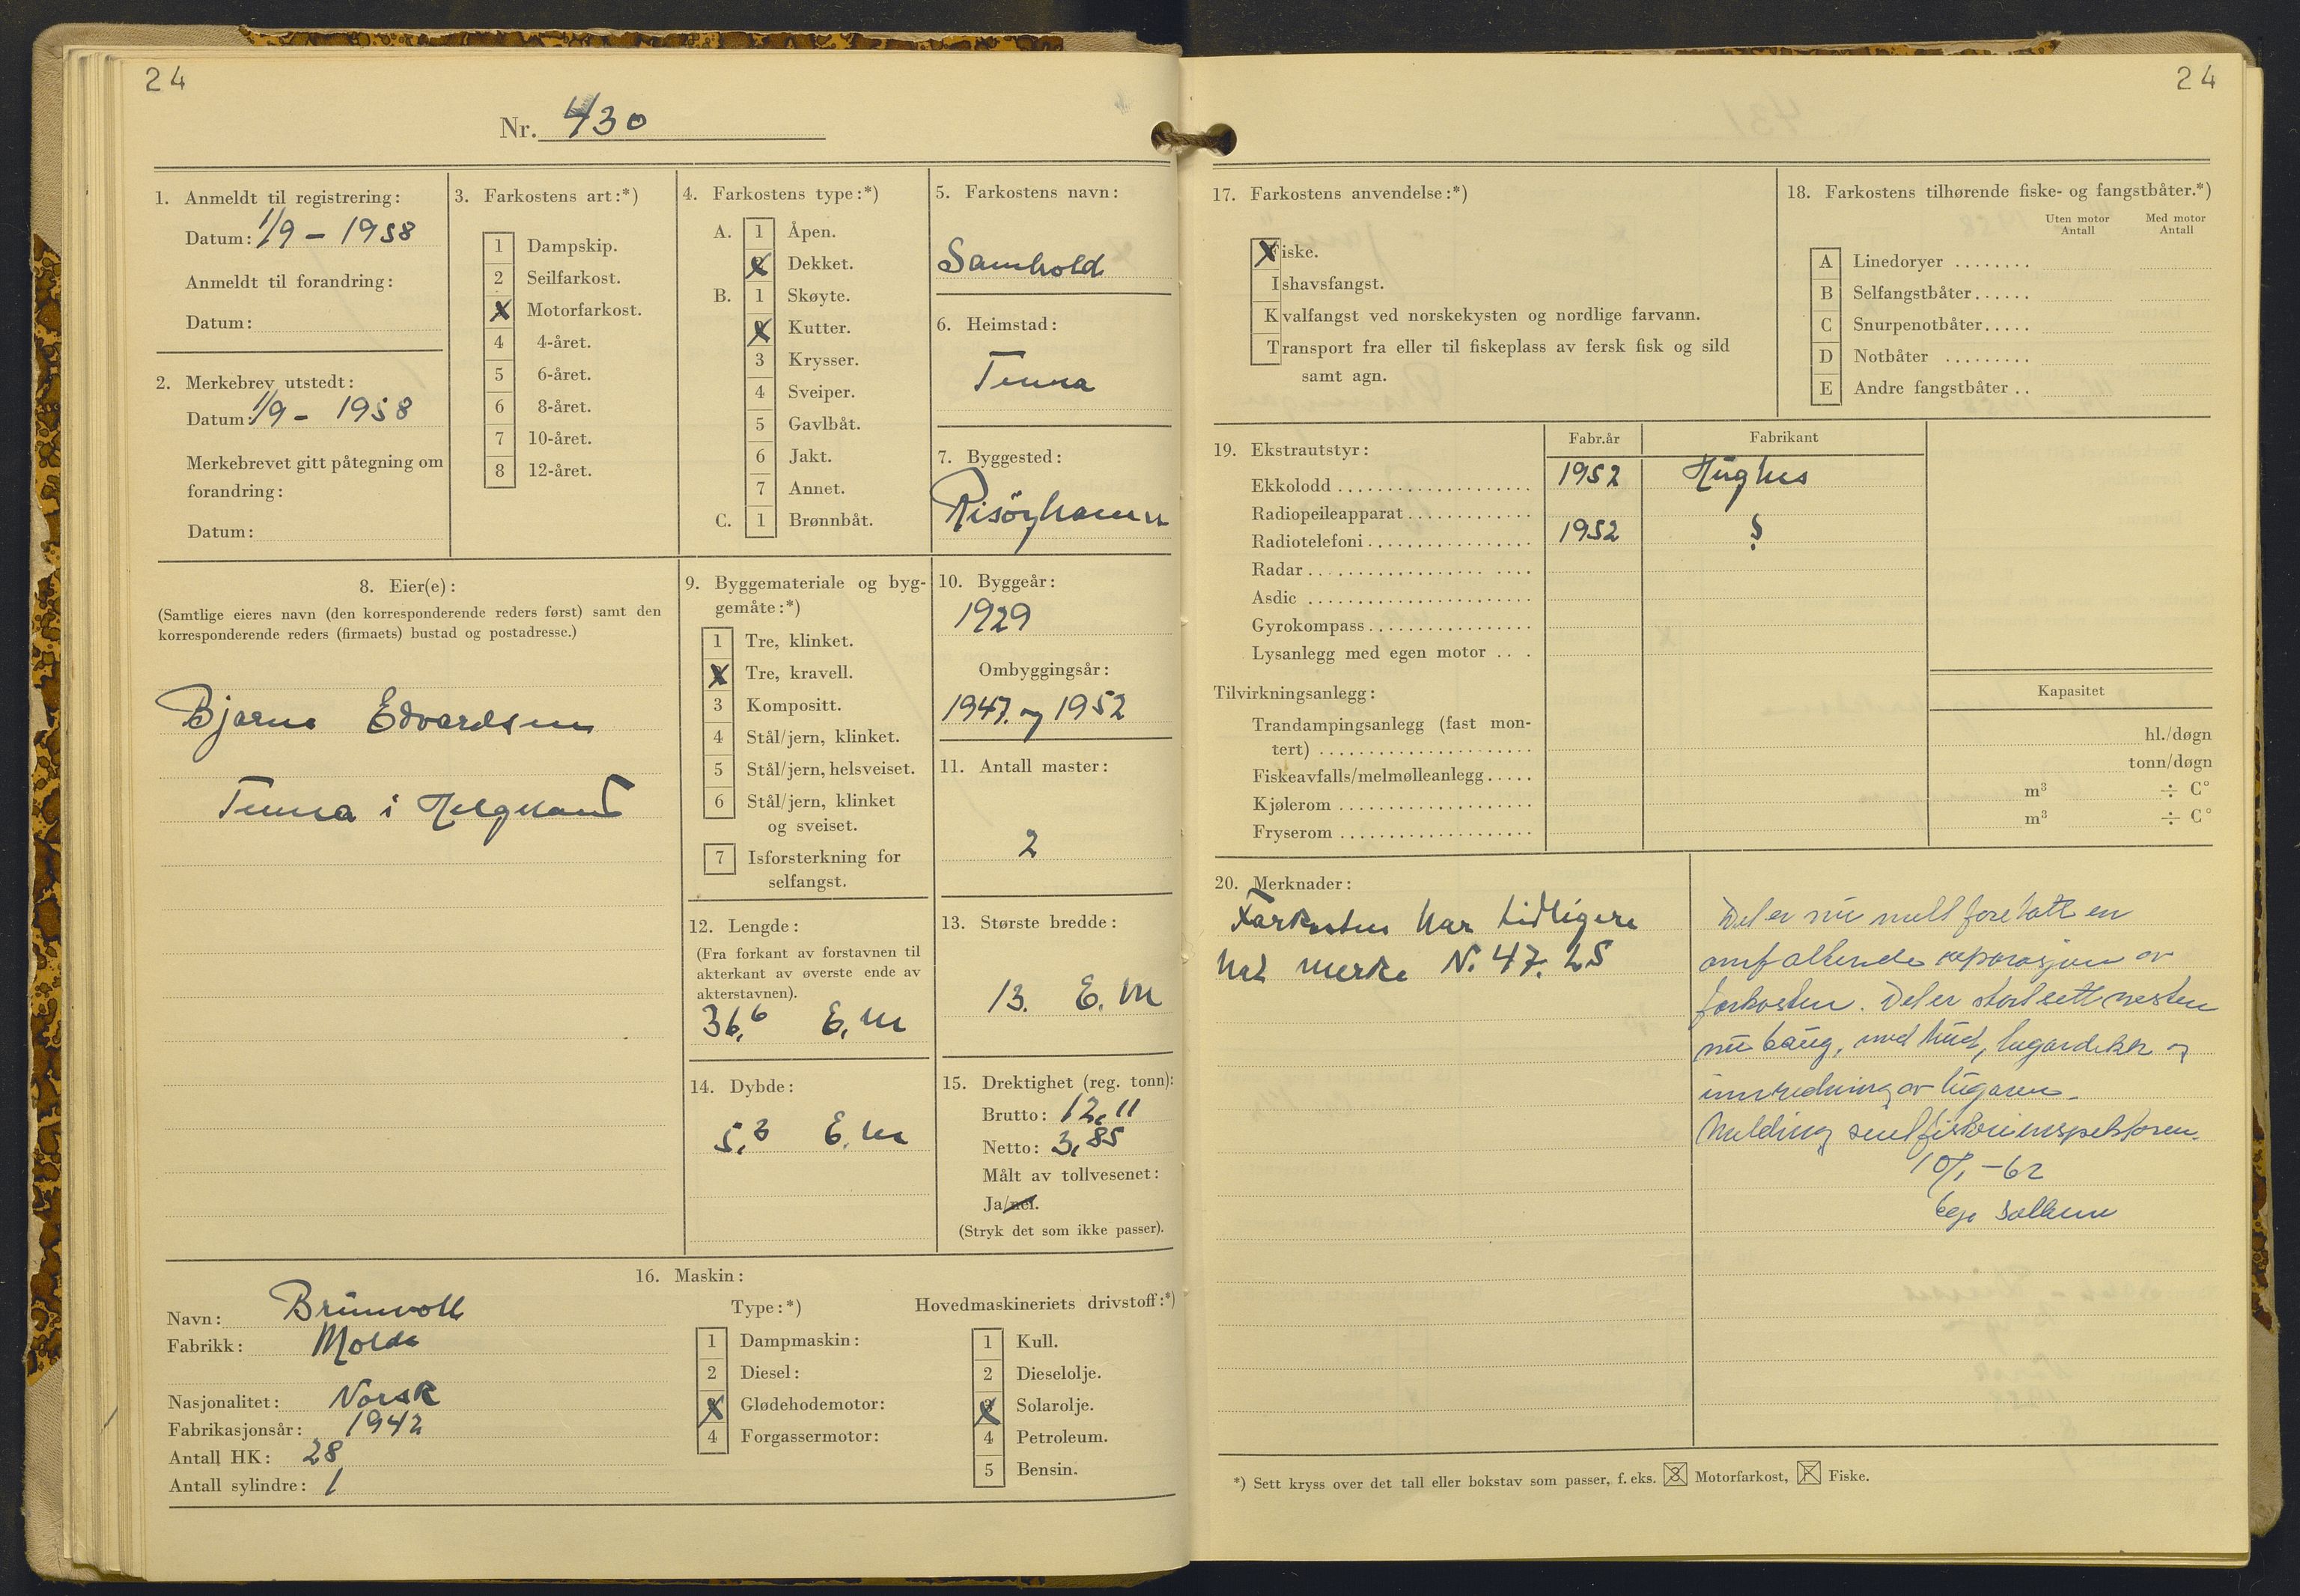 24
Nr. 430
1. Anmeldt til registrering:
Datum: 1/9 - 1958
Anmeldt til forandring:
Datum:
2. Merkebrev utstedt:
Datum: 1/9 - 1958
Merkebrevet gitt påtegning om
forandring:
Datum:
3. Farkostens art:*)
1 Dampskip.
2 Seilfarkost.
X Motorfarkost.
4 4-året.
5 6-året.
6 8-året.
7 10-året.
8 12-året.
4. Farkostens type:*)
A. 1 Åpen.
X Dekket.
B. 1 Skøyte.
X Kutter.
3 Krysser.
4 Sveiper.
5 Gavlbåt.
6 Jakt.
7 Annet.
C. 1 Brønnbåt.
5. Farkostens navn:
Samhold
6. Heimstad:
Tenna
7. Byggested:
Risöyhamn
8. Eier(e):
(Samtlige eieres navn (den korresponderende reders først) samt den
korresponderende reders (firmaets) bustad og postadresse.)
Bjarne Edvardsen
Tenna i Helgeland
9. Byggemateriale og byg-
gemåte:*)
1 Tre, klinket.
X Tre, kravell.
3 Kompositt.
4 Stål/jern, klinket.
5 Stål/jern, helsveiset.
6 Stål/jern, klinket
og sveiset.
7 Isforsterkning for
selfangst.
10. Byggeår:
1929
Ombyggingsår:
1947. og 1952
11. Antall master:
2
12. Lengde:
(Fra forkant av forstavnen til
akterkant av øverste ende av
akterstavnen).
36,6 E.m
13. Største bredde:
13. E.m
14. Dybde:
5,3 E.m
15. Drektighet (reg. tonn):
Brutto: 12,11
Netto: 3,85
Målt av tollvesenet:
Ja/nei.
(Stryk det som ikke passer).
16. Maskin:
Navn: Brunvoll
Fabrikk: Molde
Nasjonalitet: Norsk
Fabrikasjonsår: 1942
Antall HK: 28
Antall sylindre: 1
Type:*)
1 Dampmaskin:
2 Diesel:
X Glødehodemotor:
4 Forgassermotor:
Hovedmaskineriets drivstoff:*)
1 Kull.
2 Dieselolje.
X Solarolje.
4 Petroleum.
5 Bensin.
24
17. Farkostens anvendelse:*)
X Fiske.
Ishavsfangst.
Kvalfangst ved norskekysten og nordlige farvann.
Transport fra eller til fiskeplass av fersk fisk og sild
samt agn.
18. Farkostens tilhørende fiske- og fangstbåter.*)
Uten motor Med motor
Antall Antall
A Linedoryer ........
B Selfangstbåter......
C Snurpenotbåter.....
D Notbåter .........
E Andre fangstbåter ..
19. Ekstrautstyr: Fabr.år Fabrikant
Ekkolodd 1952 Hughes
Radiopeileapparat
Radiotelefoni 1952 ?
Radar
Asdic
Gyrokompass
Lysanlegg med egen motor
Tilvirkningsanlegg: Kapasitet
Trandampingsanlegg (fast mon-
tert) hl./døgn
Fiskeavfalls/melmølleanlegg..... tonn/døgn
Kjølerom m³ ÷ C°
Fryserom m³ ÷ C°
20. Merknader:
Farkosten har tidligere
hat merke N. 47. LS
Det er nu null foretatt en
omfattende reparasjon av
farkosten. Det er stort sett nesten
nu baug, med hud, lugardekk og
innredning av lugaren.
Melding sendt fiskeriinspektøren.
10/1 -62
Solheim
*) Sett kryss over det tall eller bokstav som passer, f. eks. 3 Motorfarkost, F Fiske.